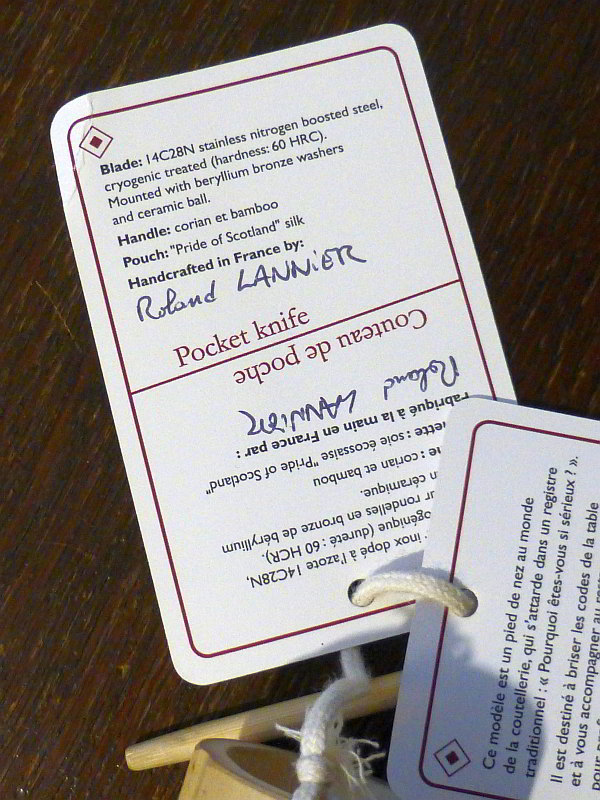 Blade: 14C28N stainless nitrogen boosted steel,
cryogenic treated (hardness: 60 HRC).
Mounted with beryllium bronze washers
and ceramic ball.
Handle: corian et bamboo
Pouch: "Pride of Scotland" silk
Handcrafted in France by:
Roland LANNIER
Pocket knife
Couteau de poche
Roland LANNIER
Fabriqué à la main en France par :
soie écossaise "Pride of Scotland"
corian et bambou
céramique.
rondelles en bronze de béryllium
(dureté : 60 HCR).
inox dopé à l'azote 14C28N,
Ce modèle est un pied de nez au monde
de la coutellerie, qui s'attarde dans un registre
traditionnel : « Pourquoi êtes-vous si sérieux ? ».
Il est destiné à briser les codes de la table
et à vous accompagner au